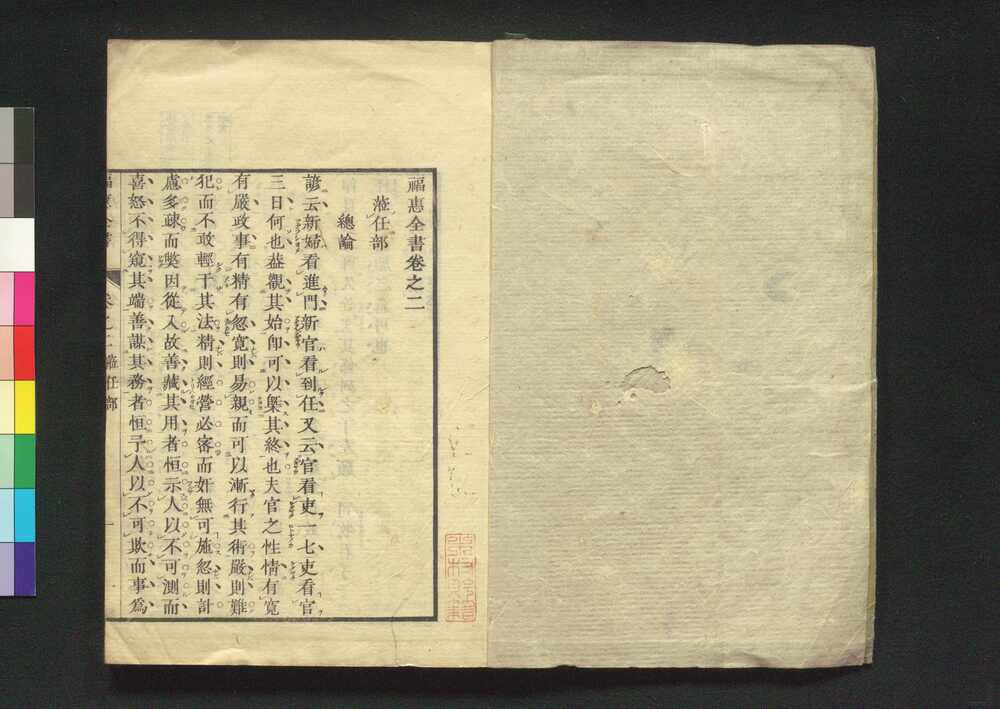 福惠全書卷之二
蒞任部
總論
諺云新婦看進門新官看到任又云官看吏一七吏看官
三日何也葢觀其始卽可以槩其終也夫官之性情有寬
有嚴政事有精有忽寬則易親而可以漸行其術嚴則難
犯而不敢輕干其法精則經營必審而奸無可施忽則計
慮多疎而獘因從入故善藏其用者恒示人以不可測而
喜怒不得窺其端善謀其務者恒予人以不可欺而事爲
卷之二 蒞任部 一